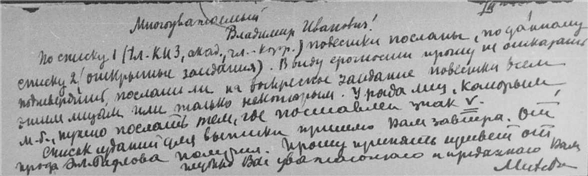 Многоуважаемый
Владимир Иванович!
По списку 1 (чл. КИЗ, акад., чл.-корр.) повестки посланы, по данному
списку 2 (открытые заседания). В виду срочности прошу не отказать
подтвердить, послали ли на воскресное заседание повестки всем
этим лицам или только некоторым. У ряда лиц, которым,
м.б., нужно послать тем, где поставлен знак V.
Список изданий для выписки пришлю Вам завтра. От
проф. Павлова получил. Прошу принять привет от
глубоко Вас уважающего и преданного Вам